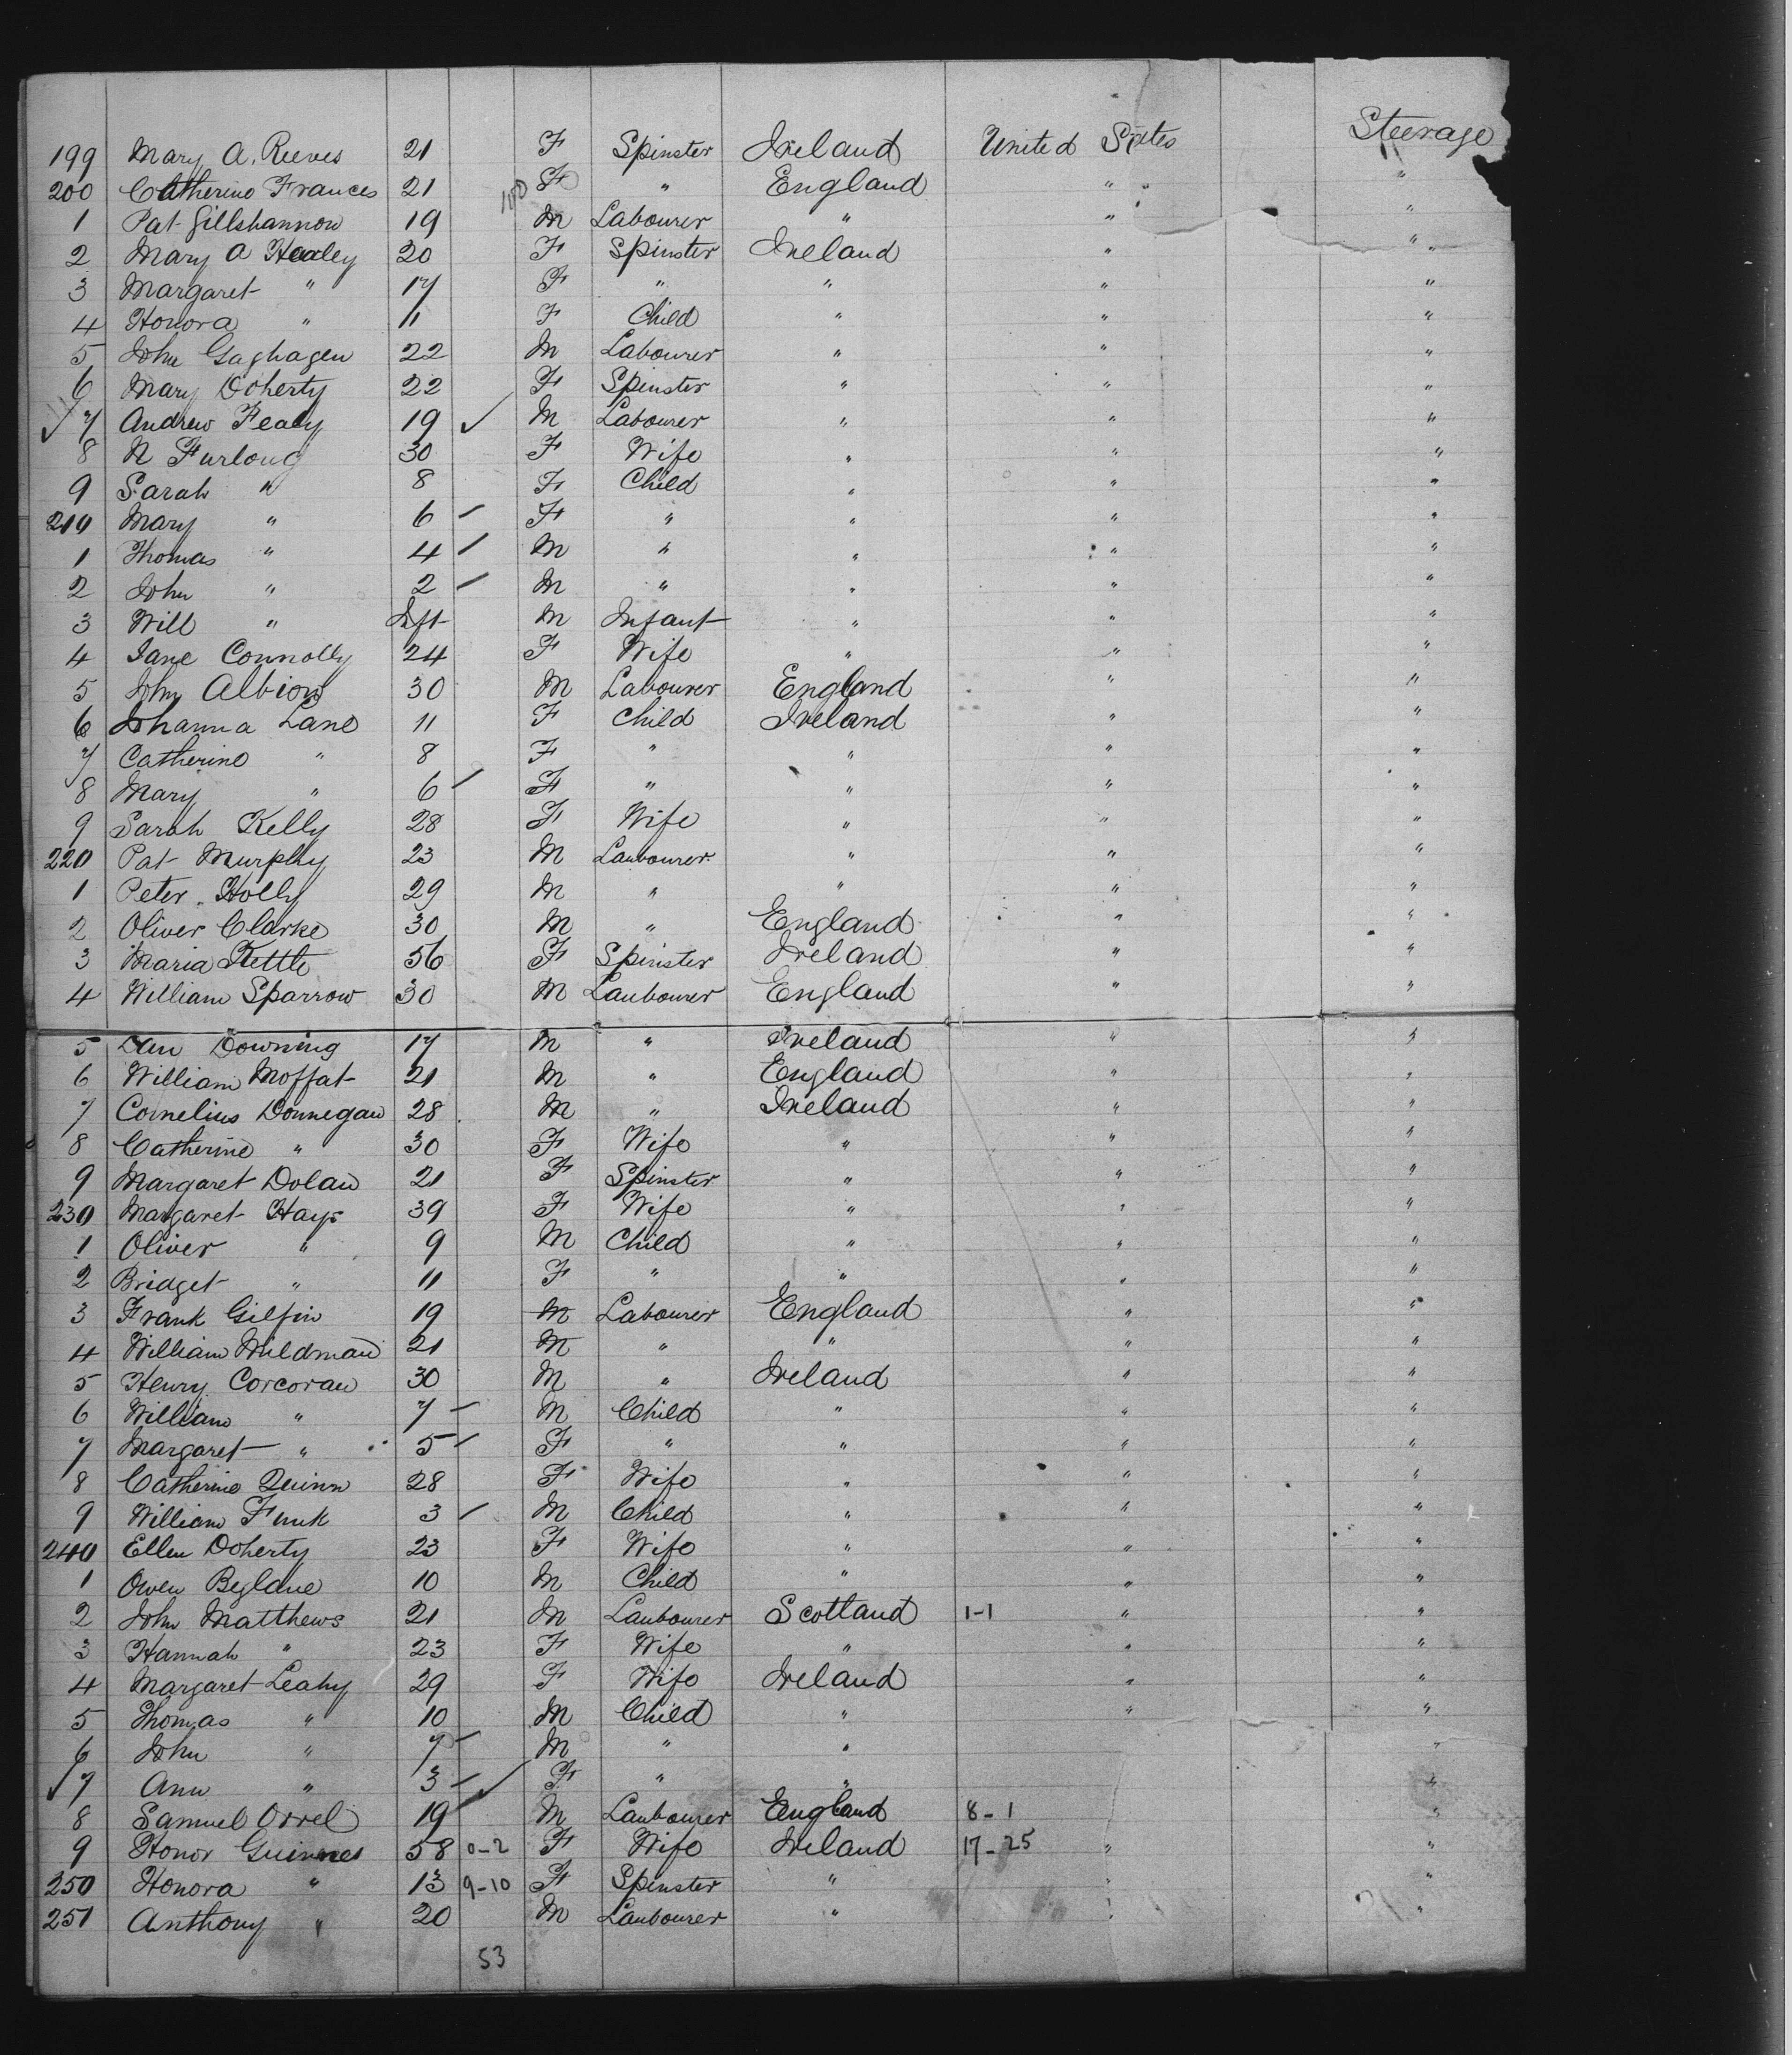 199 Mary A. Reeves 21 F Spinster Ireland United States Steerage
200 Catherine Frances 21 F " England " "
1 Pat Gillshannon 19 M Labourer " " "
2 Mary A Healey 20 F Spinster Ireland " "
3 Margaret " 17 F " " " "
4 Honora " 11 F Child " " "
5 John Gaghagen 22 M Labourer " " "
6 Mary Doherty 22 F Spinster " " "
✓ 7 Andrew Fealy 19 ✓ M Labourer " " "
8 N Furlong 30 F Wife " " "
9 Sarah " 8 F Child " " "
210 Mary " 6 – F " " " "
1 Thomas " 4 – M " " " "
2 John " 2 – M " " " "
3 Will " Inft M Infant " " "
4 Jane Connolly 24 F Wife " " "
5 John Albion 30 M Labourer England " "
6 Johanna Lane 11 F Child Ireland " "
7 Catherine " 8 F " " " "
8 Mary " 6 – F " " " "
9 Sarah Kelly 28 F Wife " " "
220 Pat Murphy 23 M Laubourer " " "
1 Peter Holly 29 M " " " "
2 Oliver Clarke 30 M " England " "
3 Maria Kettle 56 F Spinster Ireland " "
4 William Sparrow 30 M Laubourer England " "
5 Dan Downing 17 M " Ireland " "
6 William Moffat 21 M " England " "
7 Cornelius Donnegan 28 M " Ireland " "
8 Catherine " 30 F Wife " " "
9 Margaret Dolan 21 F Spinster " " "
230 Margaret Hays 39 F Wife " " "
1 Oliver " 9 M Child " " "
2 Bridget " 11 F " " " "
3 Frank Gilfin 19 M Labourer England " "
4 William Wildman 21 M " " " "
5 Henry Corcoran 30 M " Ireland " "
6 William " 7 – M Child " " "
7 Margaret " 5 – F " " " "
8 Catherine Quinn 28 F Wife " " "
9 William Funk 3 – M Child " " "
240 Ellen Doherty 23 F Wife " " "
1 Owen Beglane 10 M Child " " "
2 John Matthews 21 M Laubourer Scotland 1-1 " "
3 Hannah " 23 F Wife " " "
4 Margaret Leahy 29 F Wife Ireland " "
5 Thomas " 10 M Child " " "
6 John " 7 – M " " "
✓ 7 Ann " 3 – ✓ F " " "
8 Samuel Orrel 19 M Laubourer England 8-1 "
9 Honor Guinnes 58 0-2 F Wife Ireland 17-25 " "
250 Honora " 13 9-10 F Spinster " " "
251 Anthony " 20 M Laubourer " " "
53